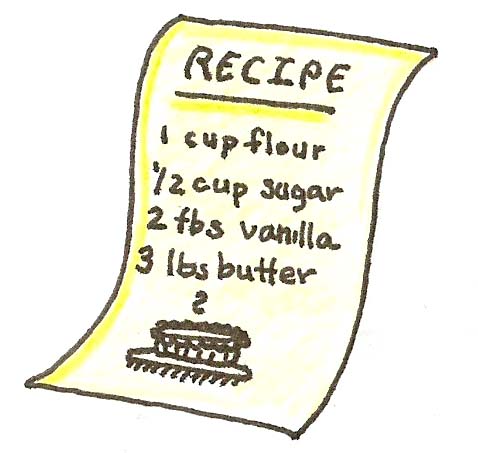 RECIPE
1 cup flour
1/2 cup sugar
2 tbs vanilla
3 lbs butter